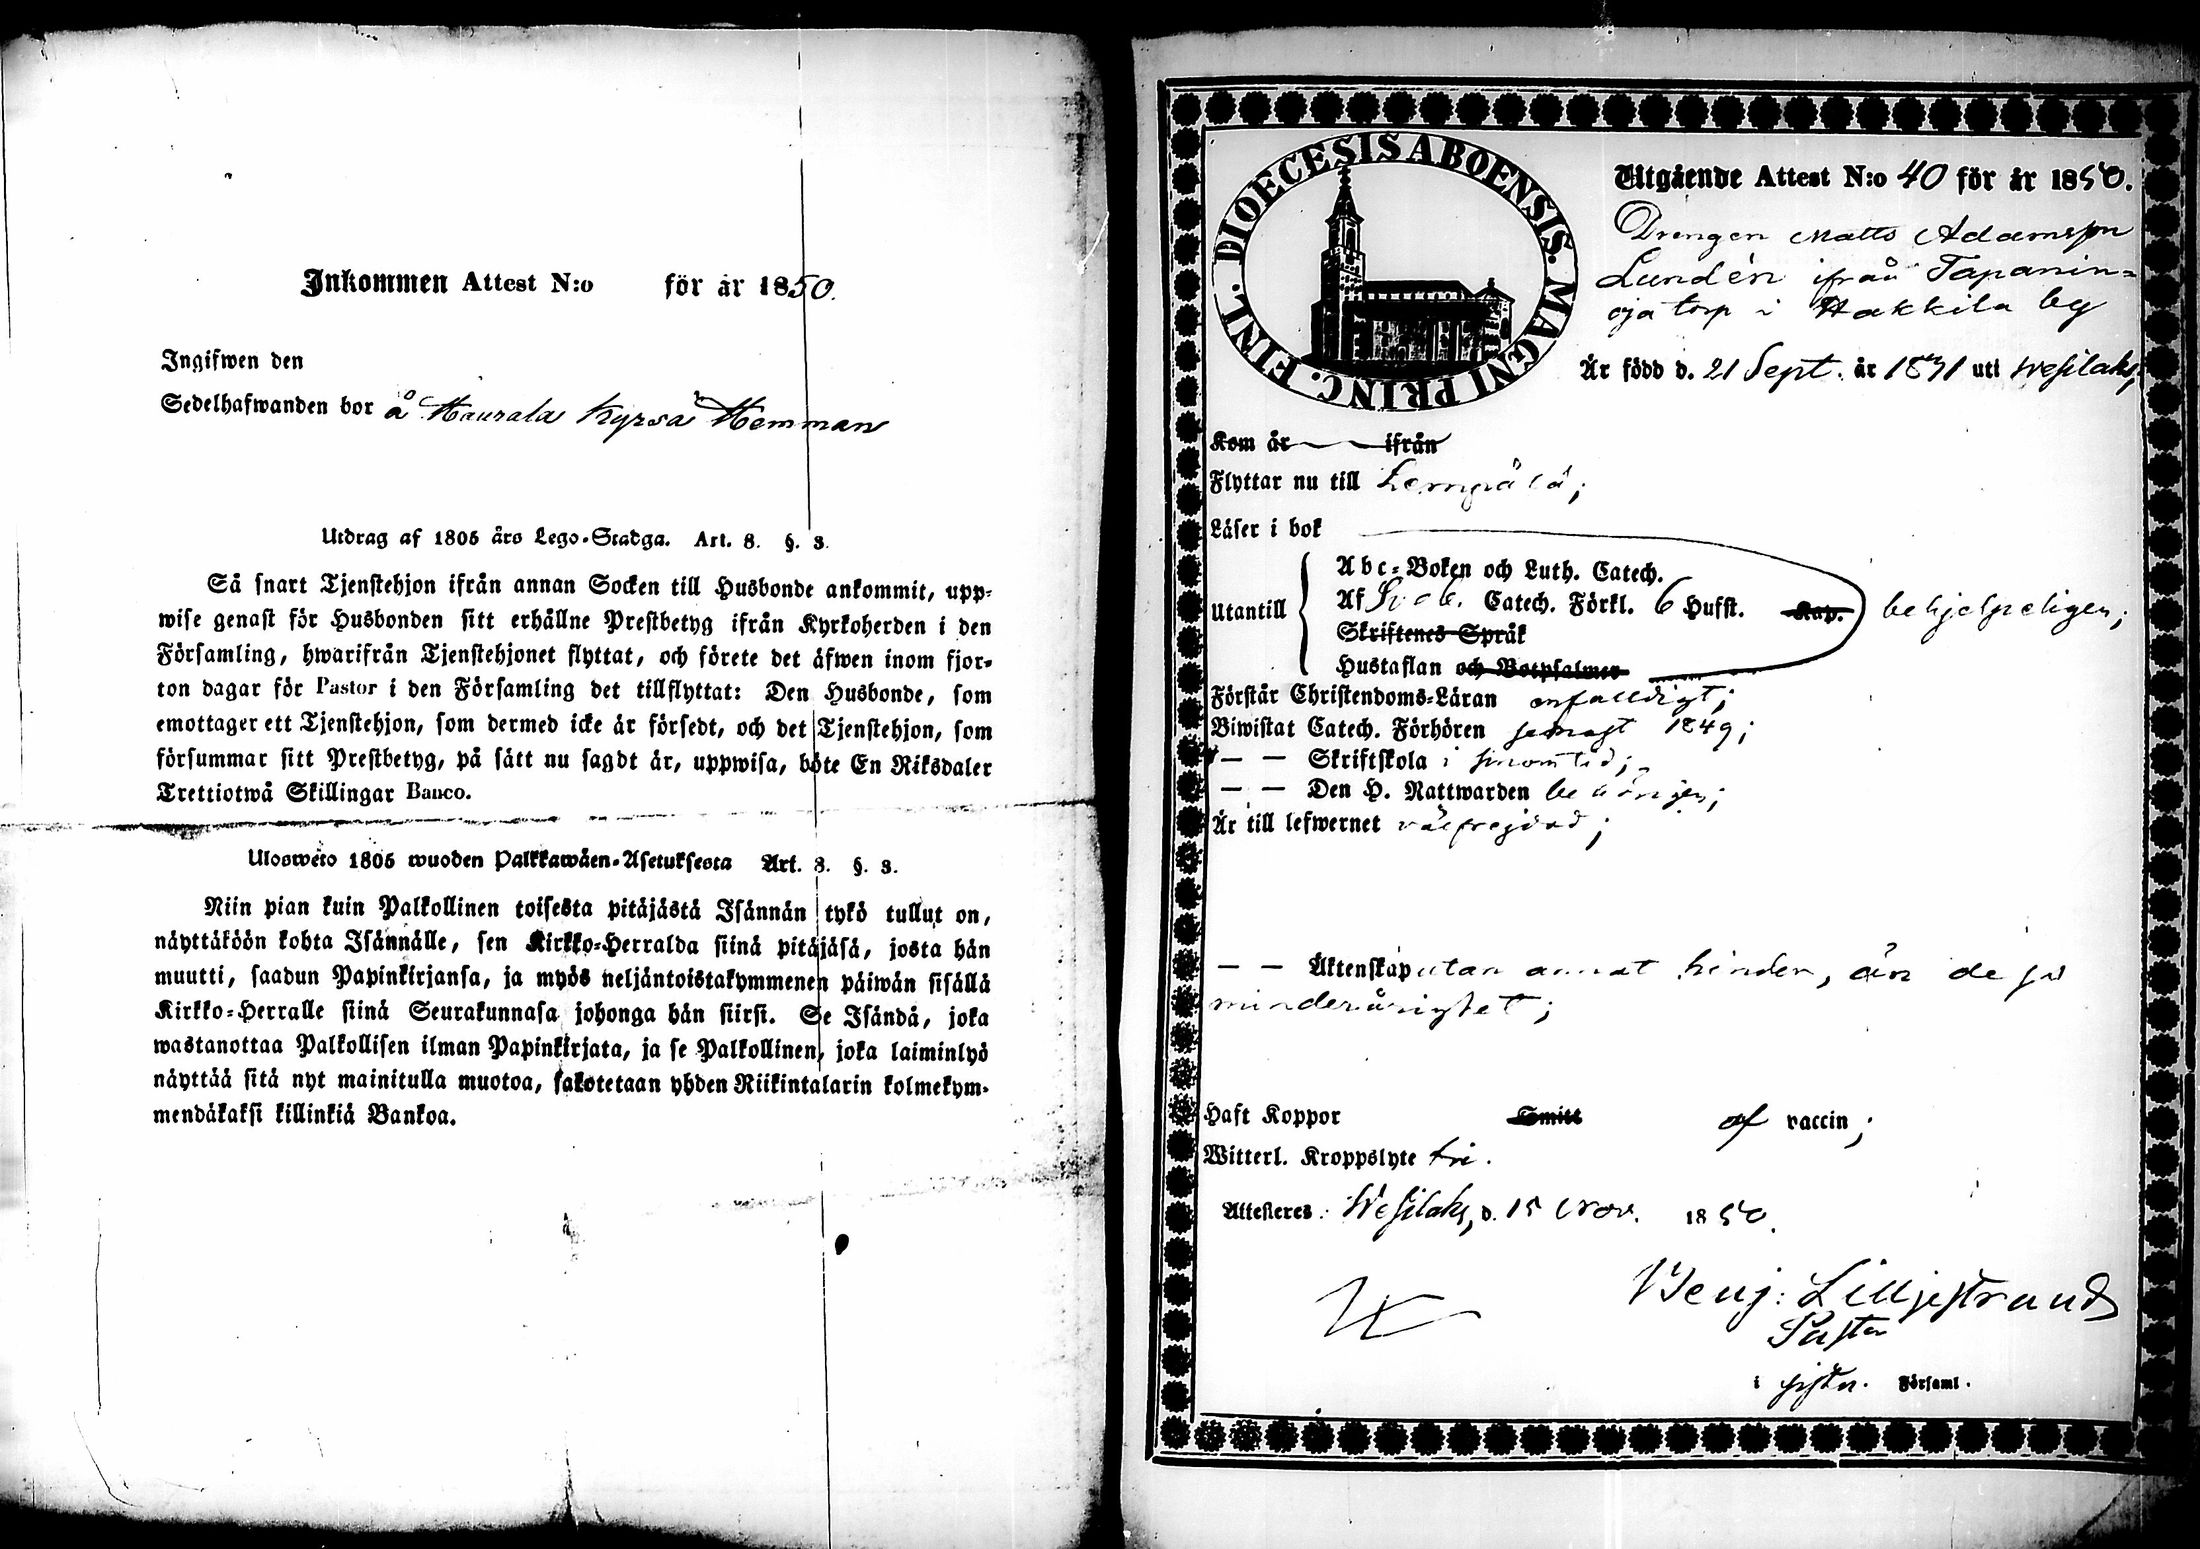 Inkommen Attest N:o för år 1850.
Ingifwen den
Sedelhafwanden bor å Maurala Kyrsä Hemman
Utdrag af 1805 års Lego-Stadga. Art. 8. §. 3.
Så snart Tjenstehjon ifrån annan Socken till Husbonde ankommit, upp-
wise genast för Husbonden sitt erhållne Prestbetyg ifrån Kyrkoherden i den
Församling, hwarifrån Tjenstehjonet flyttat, och förete det äfwen inom fjor-
ton dagar för Pastor i den Församling det tillflyttat: Den Husbonde, som
emottager ett Tjenstehjon, som dermed icke är försedt, och det Tjenstehjon, som
försummar sitt Prestbetyg, på sätt nu sagdt är, uppwisa, böte En Riksdaler
Trettiotwå Skillingar Banco.
Ulosweto 1805 wuoden Palkkawäen-Asetuksesta Art. 8. §. 3.
Niin pian kuin Palkollinen toisesta pitäjästä Isännän tykö tullut on,
näyttäköön kohta Isännälle, sen Kirkko-Herralda siinä pitäjäsä, josta hän
muutti, saadun Papinkirjansa, ja myös neljäntoistakymmenen päiwän sisällä
Kirkko-Herralle siinä Seurakunnasa johonga hän siirsi. Se Isändä, joka
wastanottaa Palkollisen ilman Papinkirjata, ja se Palkollinen, joka laiminlyö
näyttää sitä nyt mainitulla muotoa, sakotetaan yhden Riikintalarin kolmekym-
mendäkaksi killinkiä Bankoa.
DIOECESIS ABOENSIS. MAGNI PRINC. FINL.
Utgående Attest N:o 40 för år 1850.
Drengen Matts Adamsson
Lundén ifrån Tapanin-
oja torp i Hakkila by
Är född d. 21 Sept. år 1831 uti Wesilaks,
Kom år ifrån
Flyttar nu till Lempälä;
Läser i bok
Utantill
Abc-Boken och Luth. Catech.
Af Sveb. Catech. Förkl. 6 Hufst. Kap. behjelpeligen;
Skriftenes Språk
Hustaflan och Botpsalmer
Förstår Christendoms-Läran enfalldigt;
Biwistat Catech. Förhören senast 1849;
— — Skriftskola i sinom tid;
— — Den H. Nattwarden behörigen;
Är till lefwernet välfrejdad;
— — Äktenskap utan annat hinder, än dess
minderårighet;
Haft Koppor Smitt af vaccin;
Witterl. Kroppslyte fri.
Attesteres: Wesilaks, d. 15 Nov. 1850.
Benj: Lilljestrand
Pastor
i Förs­aml.